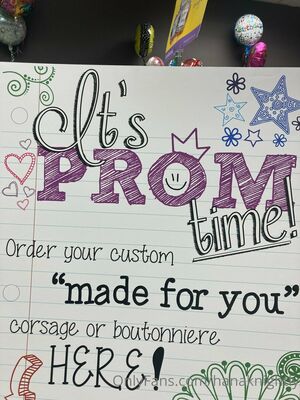 It's
PROM
time!
Order your custom
"made for you"
corsage or boutonniere
HERE!